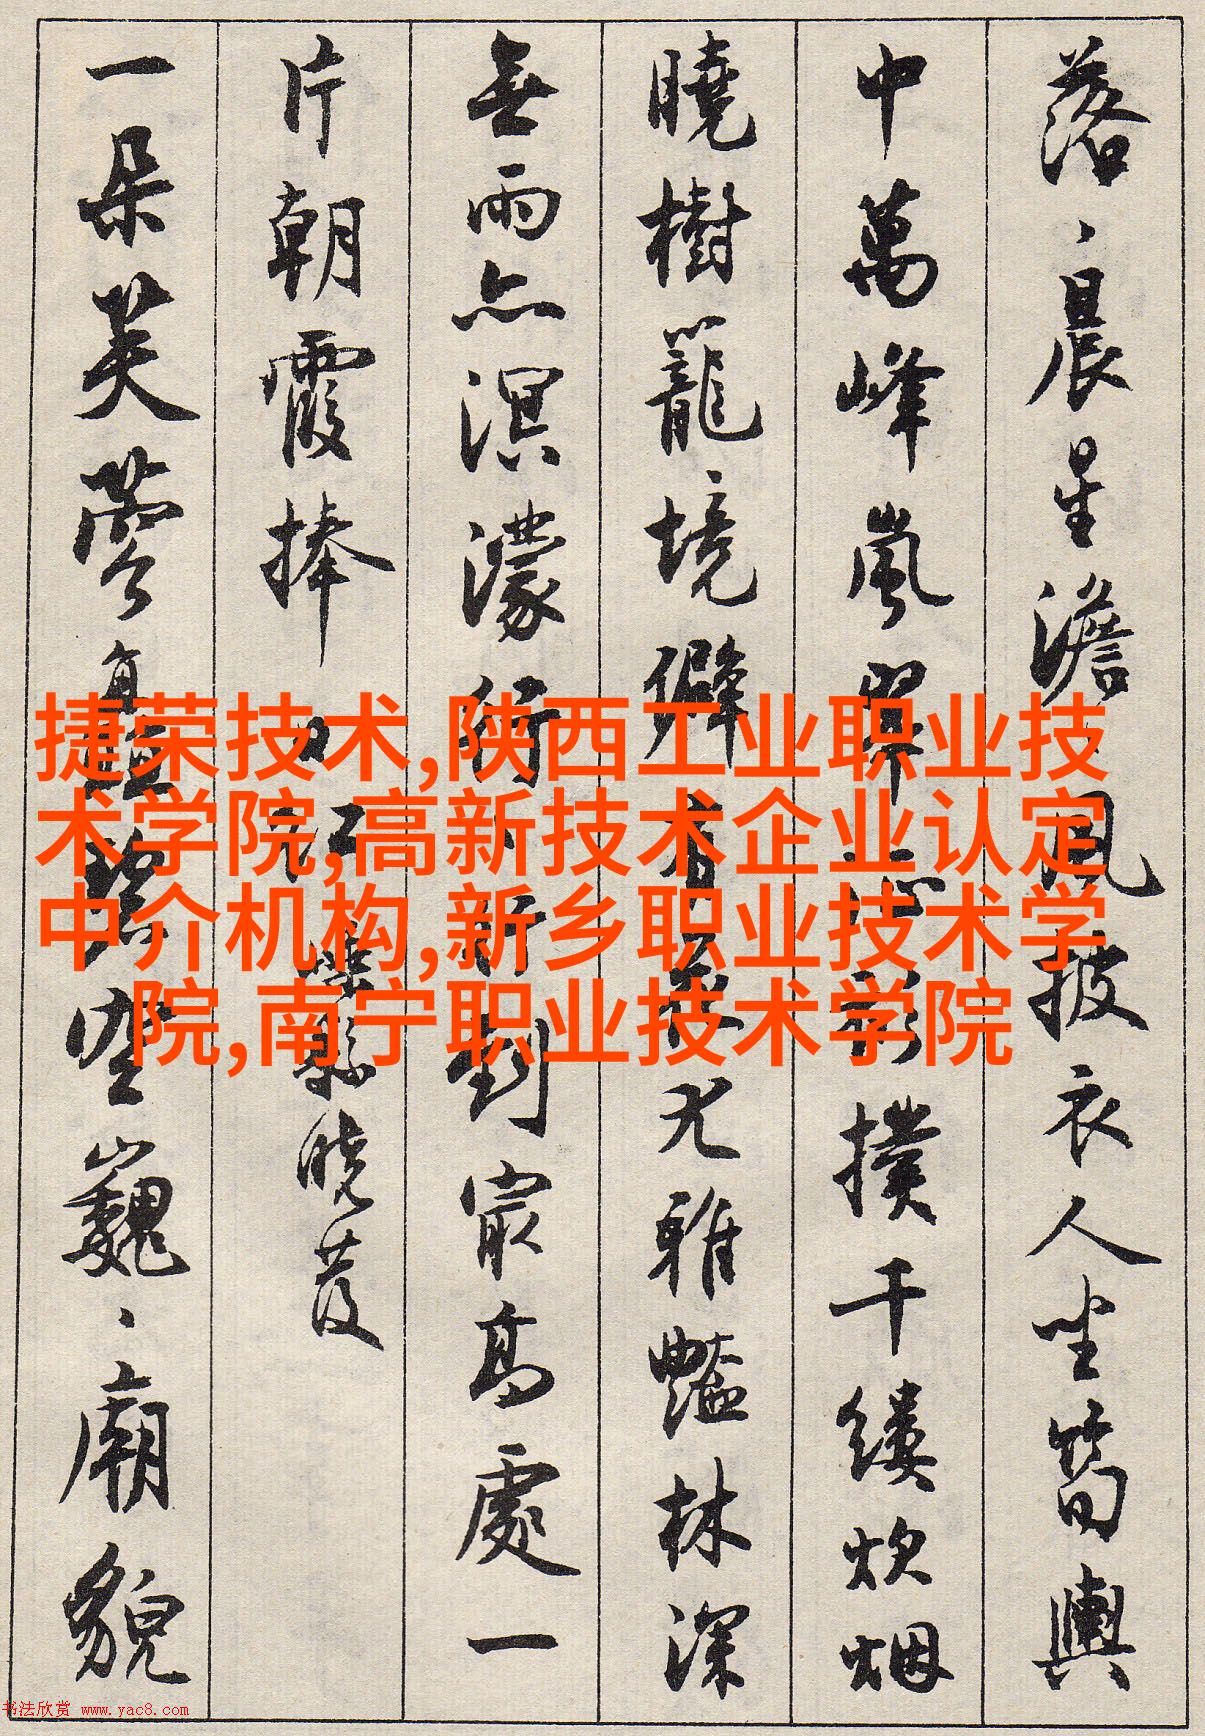 落、晨星澹、風披衣人坐筍輿
中萬峰嵐翠 撲千縷炊烟
曉樹籠、境僻 尤雅豔林深
無雨亦溟濛行、新到最高處一
片朝霞捧日 江 縣曉發
一朵芙蓉 直 碧 望巍、廟貌
捷荣技术,陕西工业职业技
术学院,高新技术企业认定
中介机构,新乡职业技术学
院,南宁职业技术学院
书法欣赏 www.yac8.com